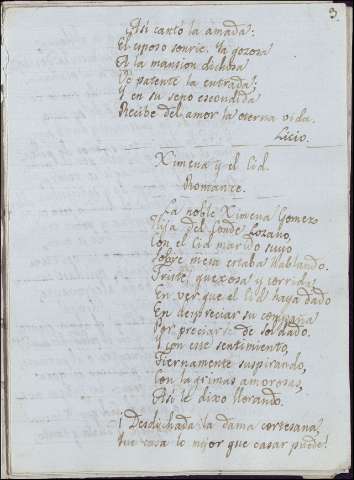 3
Asi cantó la amada:
El esposo sonrie. Ya gozosa
A la mansion dichosa
Vé patente la entrada;
Y en su seno escondida
Recibe del amor la eterna vida.
Licio.
Ximena y el Cid.
Romanze.
La noble Ximena Gomez
Hija del Conde Lozano,
Con el Cid marido suyo
Sobre mesa estaba hablando.
Triste, quexosa y corrida
En ver que el Cid haya dado
En despreciar su compañia
Por preciarse de soldado.
Y con este sentimiento,
Tiernamente suspirando,
Con lagrimas amorosas,
Asi le dixo llorando.
¡Desdichada la dama cortesana,
Que casa lo mijor que casar puede!